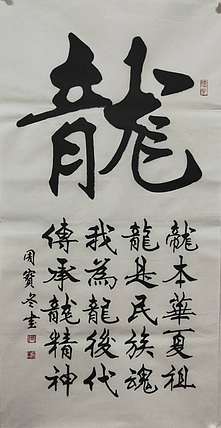 龍
龍本華夏祖
龍是民族魂
我為龍後代
傳承龍精神
周寶冬書